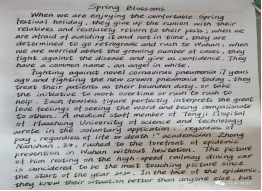 Spring Blossoms
When we are enjoying the comfortable Spring
festival holiday, they give up the runion with their
relatives and resolutely return to their posts; when we
are afraid of avoiding it and not in time, they are
determined to go retrograde and rush to Wuhan; when
we are worried about the growing number of cases, they
fight against the disease and give us confidence. They
have a common name, an angel in white.
Fighting against novel coronavirus pneumonia 17 years
ago and fighting the new crown pneumonia today, they
treat their patients as their bounden duty, or take
the initiative to work overtime or rush to rush to
help. Each fearless figure perfectly interprets the great
love feelings of seeing the word and being compassionate
to others. A medical staff member of Tongji Hospital
of Huazhong University of science and technology
wrote in the voluntary application, " regardless of
pay, regardless of life or death". academician Zhong
Nanshan, 84, rushed to the forefront of epidemic
prevention in Wuhan without hesitation. The picture
of him resting on the high-speed railway dining car
is considered to be the most touching picture since
the of the year 2020. In the face of the epidemic,
they know their situation better than anyone else, but